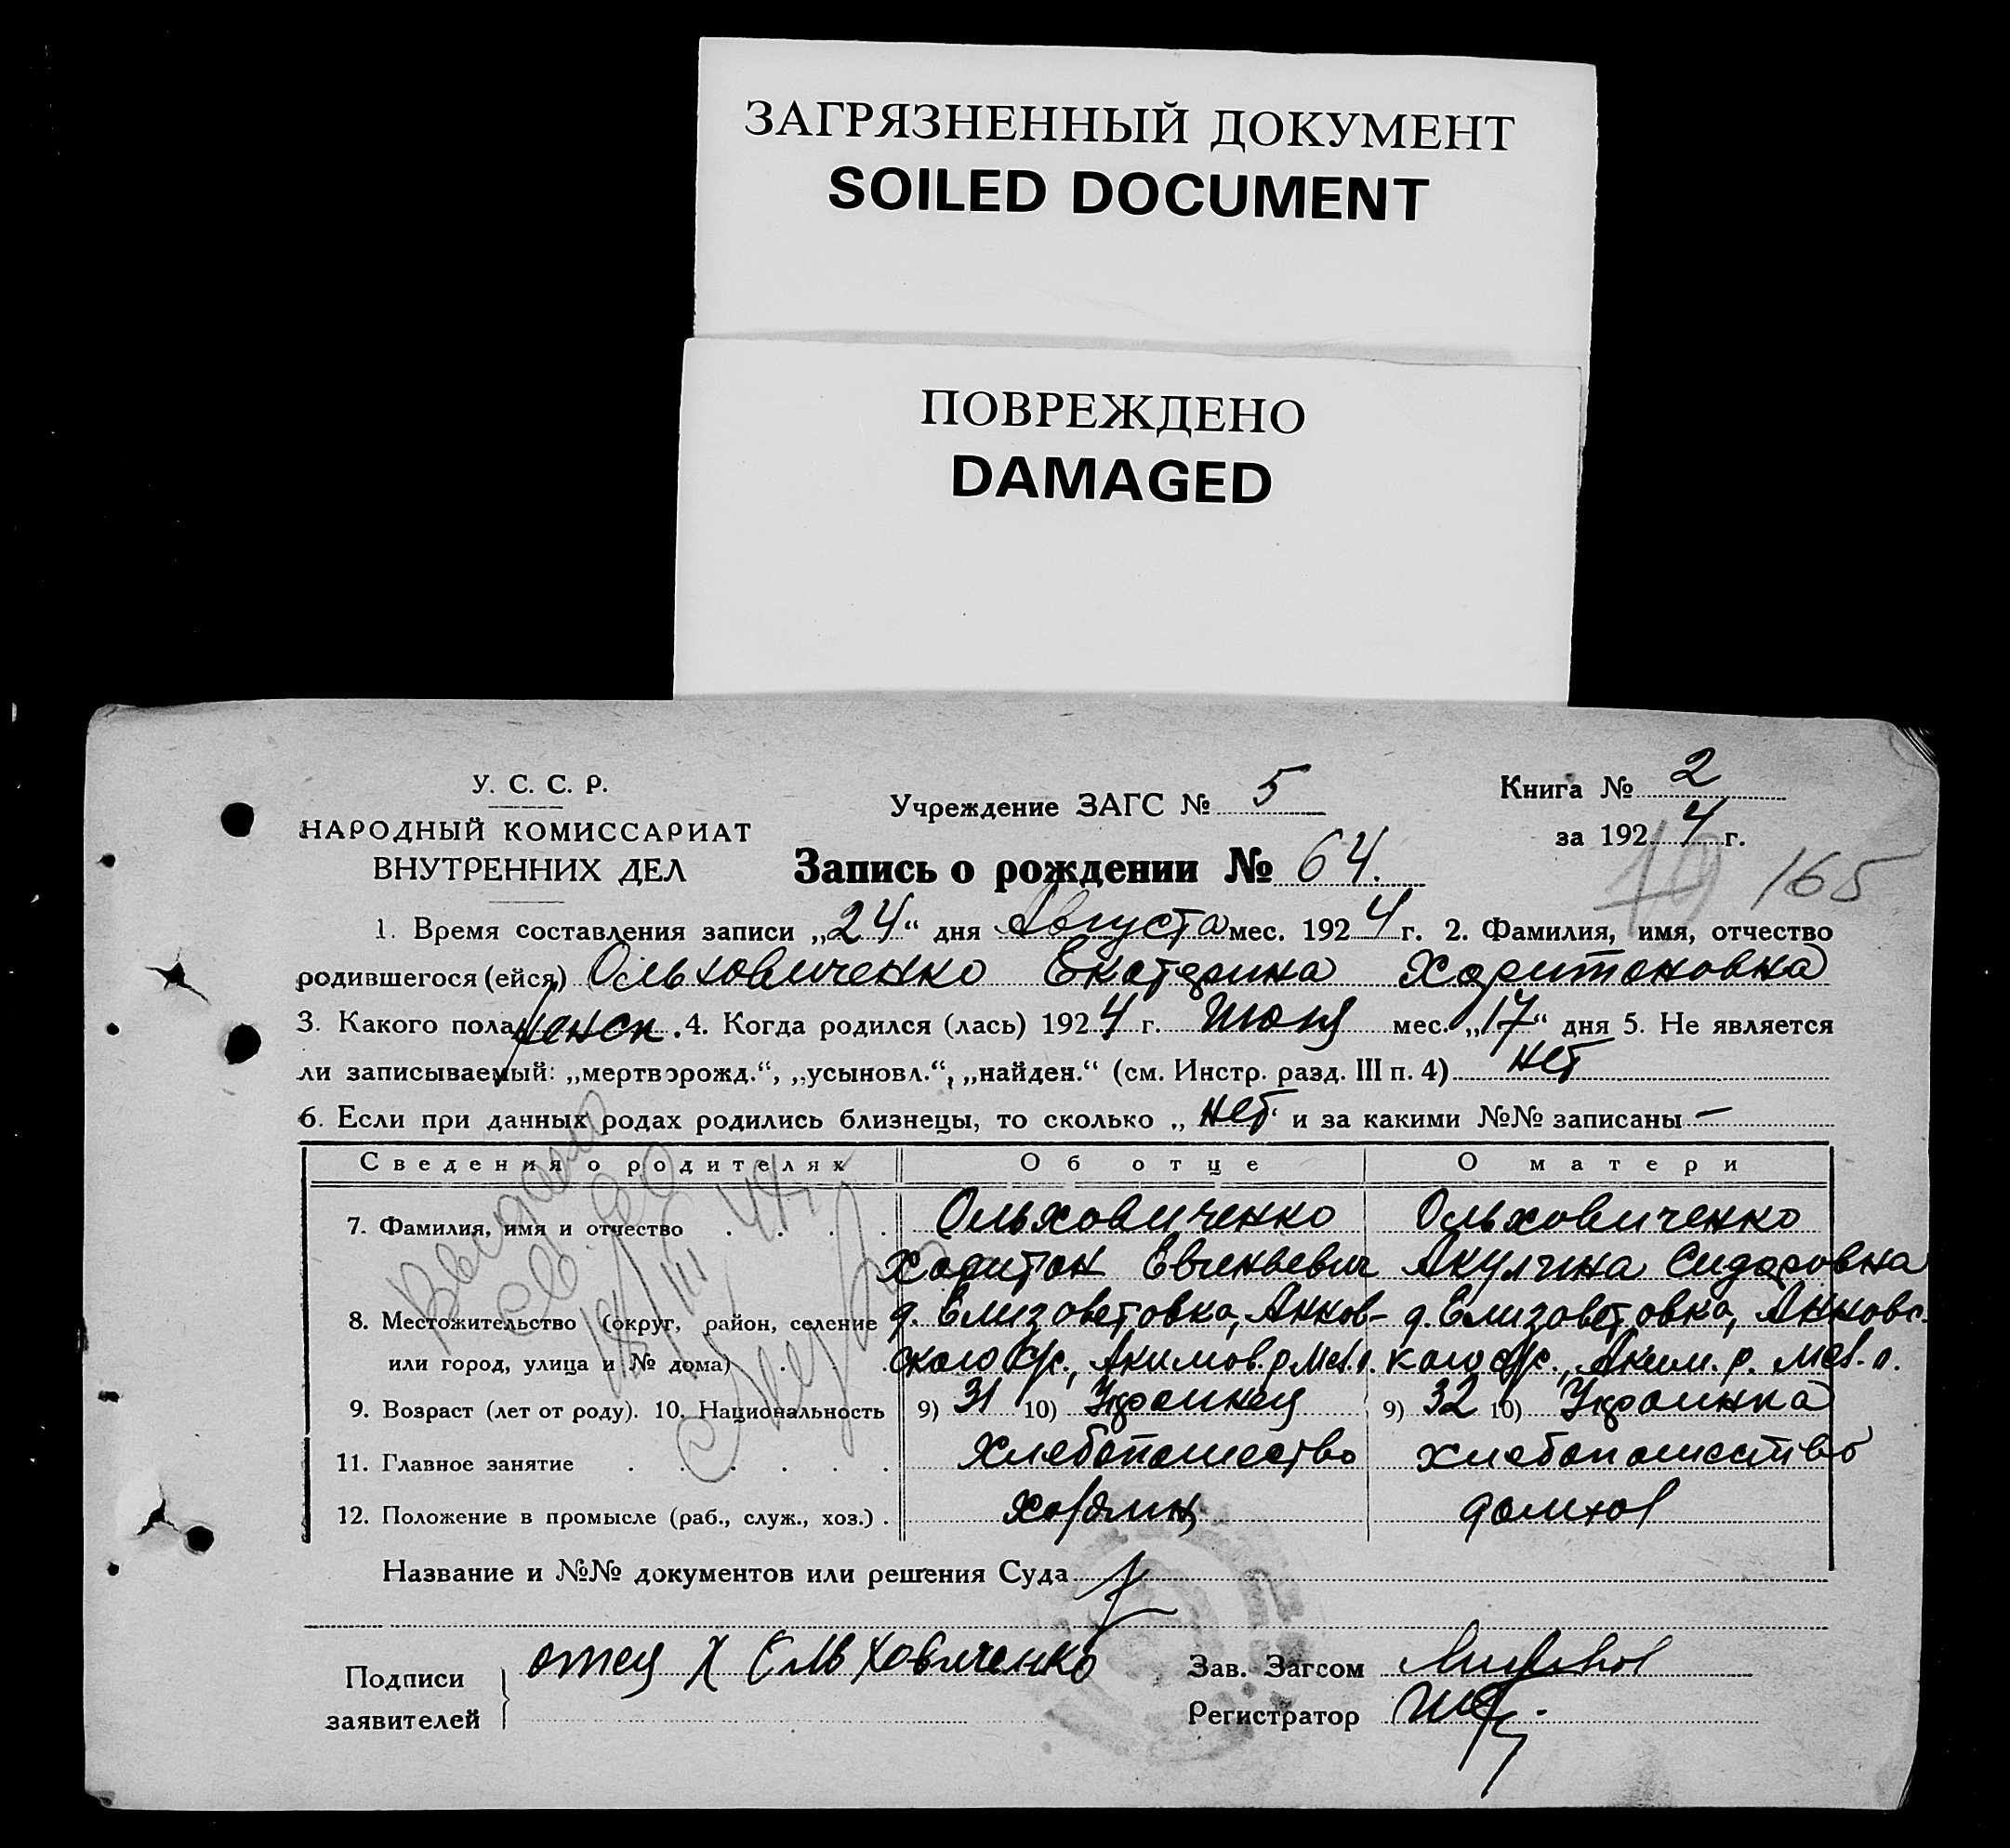 ЗАГРЯЗНЕННЫЙ ДОКУМЕНТ
SOILED DOCUMENT
ПОВРЕЖДЕНО
DAMAGED
У. С. С. Р.
НАРОДНЫЙ КОМИССАРИАТ
ВНУТРЕННИХ ДЕЛ
Учреждение ЗАГС № 5
Книга № 2
за 1924 г.
Запись о рождении № 64.
19 165
1. Время составления записи „24“ дня Августа мес. 1924 г. 2. Фамилия, имя, отчество
родившегося (ейся) Ольховиченко Екатерина Харитоновна
3. Какого пола женск. 4. Когда родился (лась) 1924 г. Июня мес. „17“ дня 5. Не является
ли записываемый: „мертворожд.“, „усыновл.“, „найден.“ (см. Инстр. разд. III п. 4) нет
6. Если при данных родах родились близнецы, то сколько „ нет “ и за какими №№ записаны —
Сведения о родителях Об отце О матери
7. Фамилия, имя и отчество Ольховиченко Ольховиченко
Харитон Акулина Сидоровна
8. Местожительство (округ, район, селение д. Елизаветовка, Аннов- д. Елизаветовка, Анновс-
или город, улица и № дома) ского с/с., Акимов. р. Мел. о. кого с/с., Аким. р. Мел. о.
9. Возраст (лет от роду). 10. Национальность 9) 31 10) Украинец 9) 32 10) Украинка
11. Главное занятие хлебопашество хлебопашество
12. Положение в промысле (раб., служ., хоз.) домхоз
Название и №№ документов или решения Суда
Подписи заявителей отец Х Ольховиченко
Зав. Загсом
Регистратор
Выдано